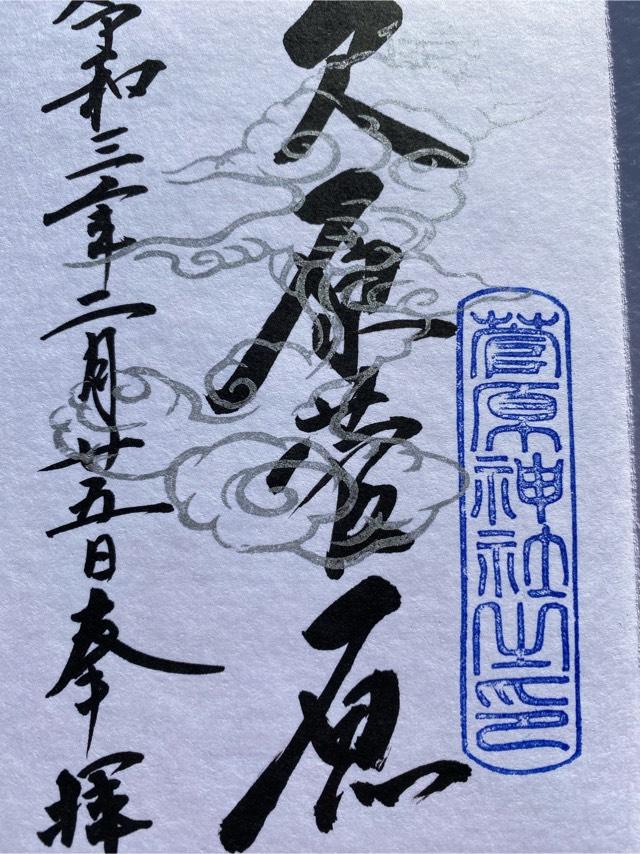 菅原神社之印
久原菅原
令和三年二月廿五日奉拝